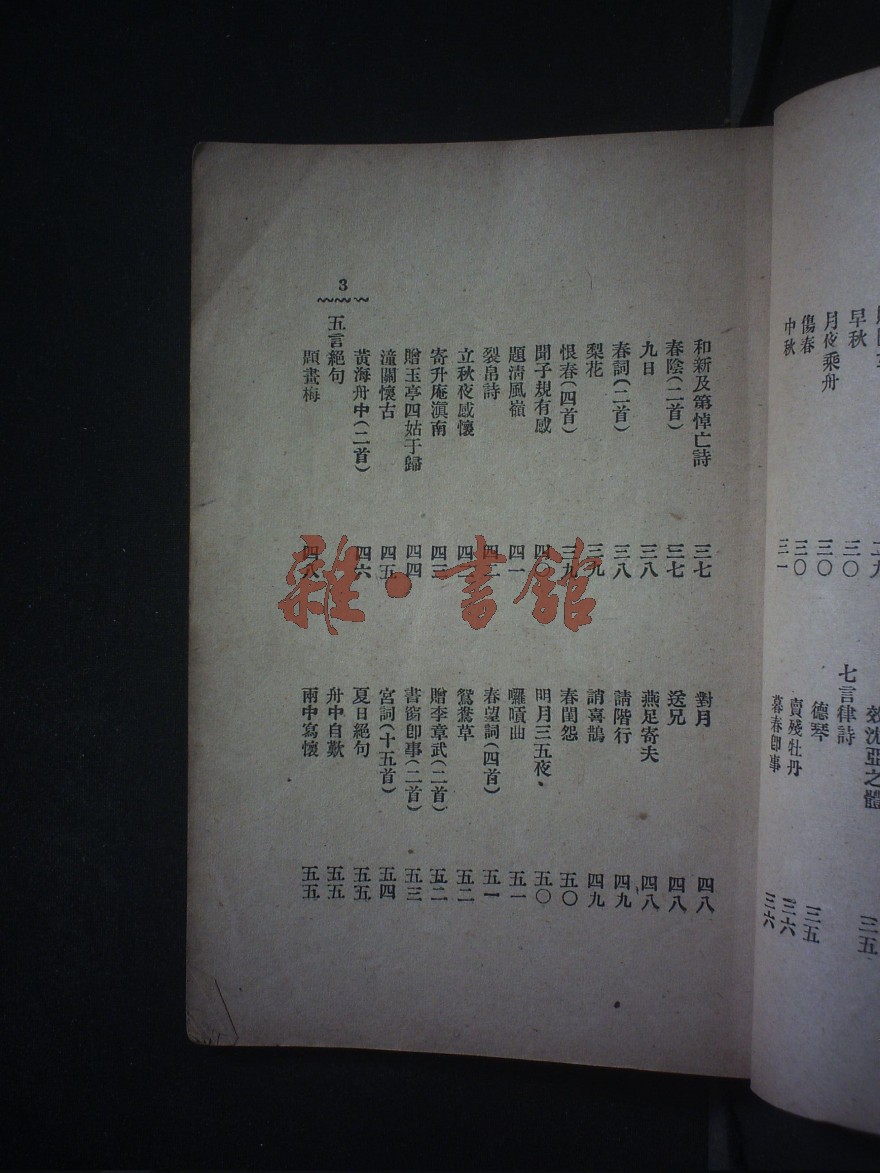 早秋 三〇
月夜乘舟 三〇
傷春 三〇
中秋 三一
效沈亞之體 三五
七言律詩
德琴 三五
賣殘牡丹 三六
暮春卽事 三六
3
和新及第悼亡詩 三七
春陰(二首) 三七
九日 三八
春詞(二首) 三八
梨花 三九
恨春(四首) 三九
聞子規有感 四〇
題清風嶺 四一
裂帛詩 四二
立秋夜感懷 四二
寄升庵滇南 四三
贈玉亭四姑于歸 四四
潼關懷古 四五
黃海舟中(二首) 四六
五言絕句
題畫梅 四八
對月 四八
送兄 四八
燕足寄夫 四八
請階行 四九
誚喜鵲 四九
春閨怨 五〇
明月三五夜 五〇
囉嗊曲 五一
春望詞(四首) 五一
鴛鴦草 五二
贈李章武(二首) 五二
書窗卽事(二首) 五三
宮詞(十五首) 五四
夏日絕句 五五
舟中自歎 五五
雨中寫懷 五五
雜·書館